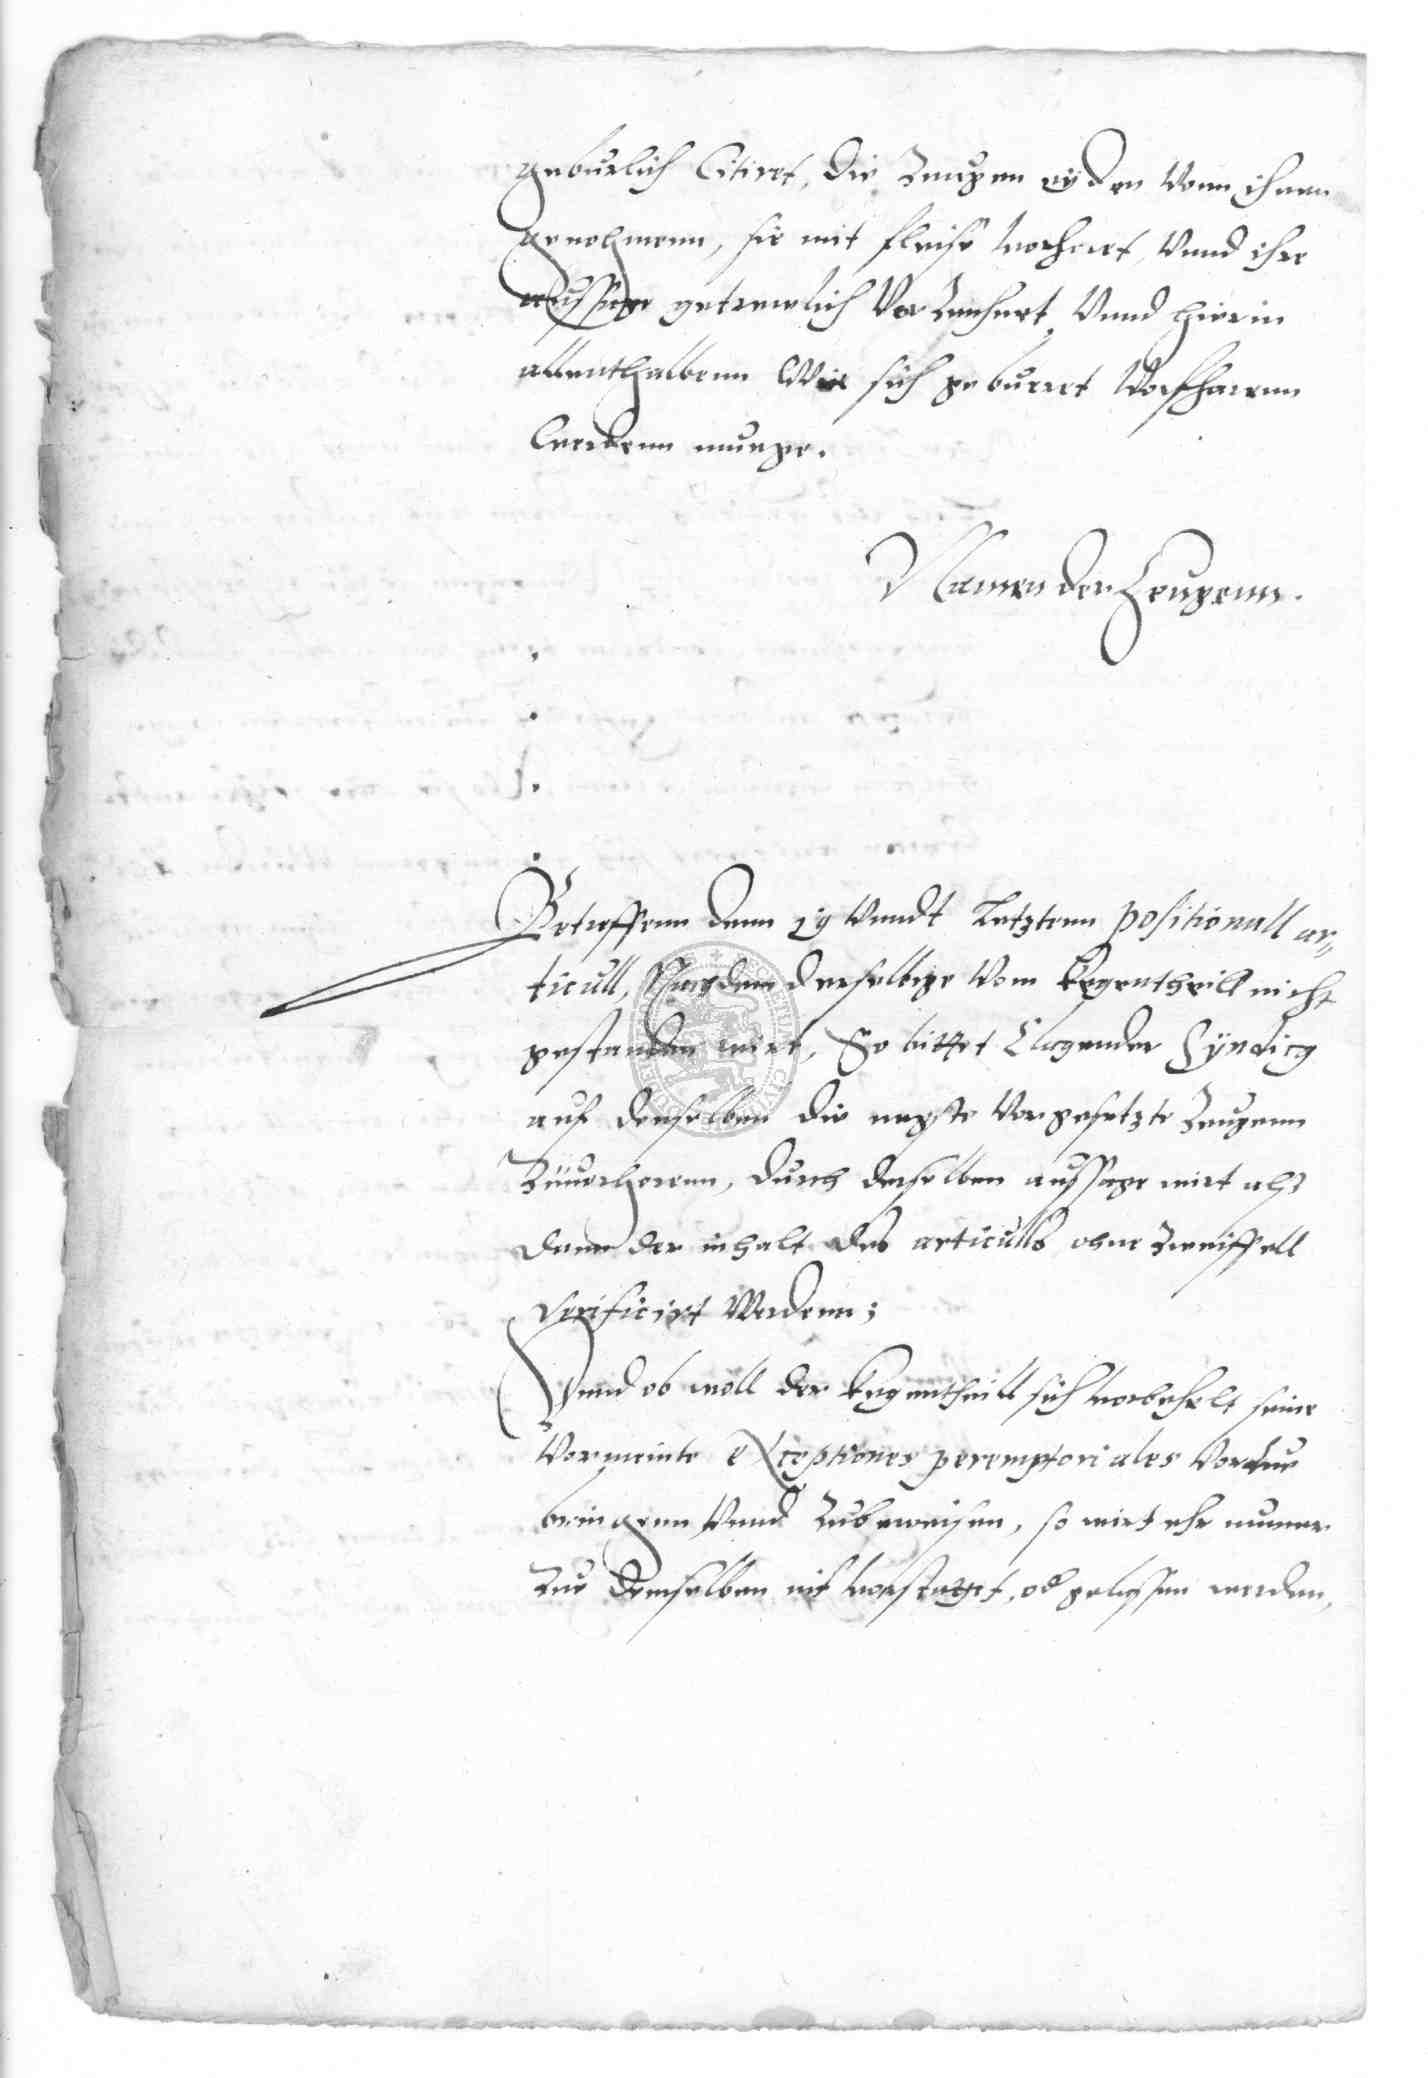 geburlich Citiret, die Zeugen eÿden vonn ihnen
genohmenn, sie mit fleise vorhoret, vnnd ihre
aussage getrewlich vorzeichnet, vnnd hierin
allenthalbenn wie sich geburet vorfharenn
werdenn muege.
Namen der Zeugenn.
Betreffenn denn 19 vnndt letztenn positionall ar„
ticull, Nachdem derselbige vom kegentheill nicht
gestanden wirt, So bittet Clagender Sÿndicg
auf denselben die negste vorgesetzte Zeugenn
Zuuerhorenn, durch derselben aussage wirt als
dann der inhalt des articulls ohne Zweiffell
verificirt werdenn;
Vnnd ob woll der kegentheill sich vorbehelt seine
vormeinte exceptiones peremptoriales vorzue
bringenn vnnd Zubeweisen, so wirt ehr nummer
Zue demselben nit vorstattet, od gelassen werden,